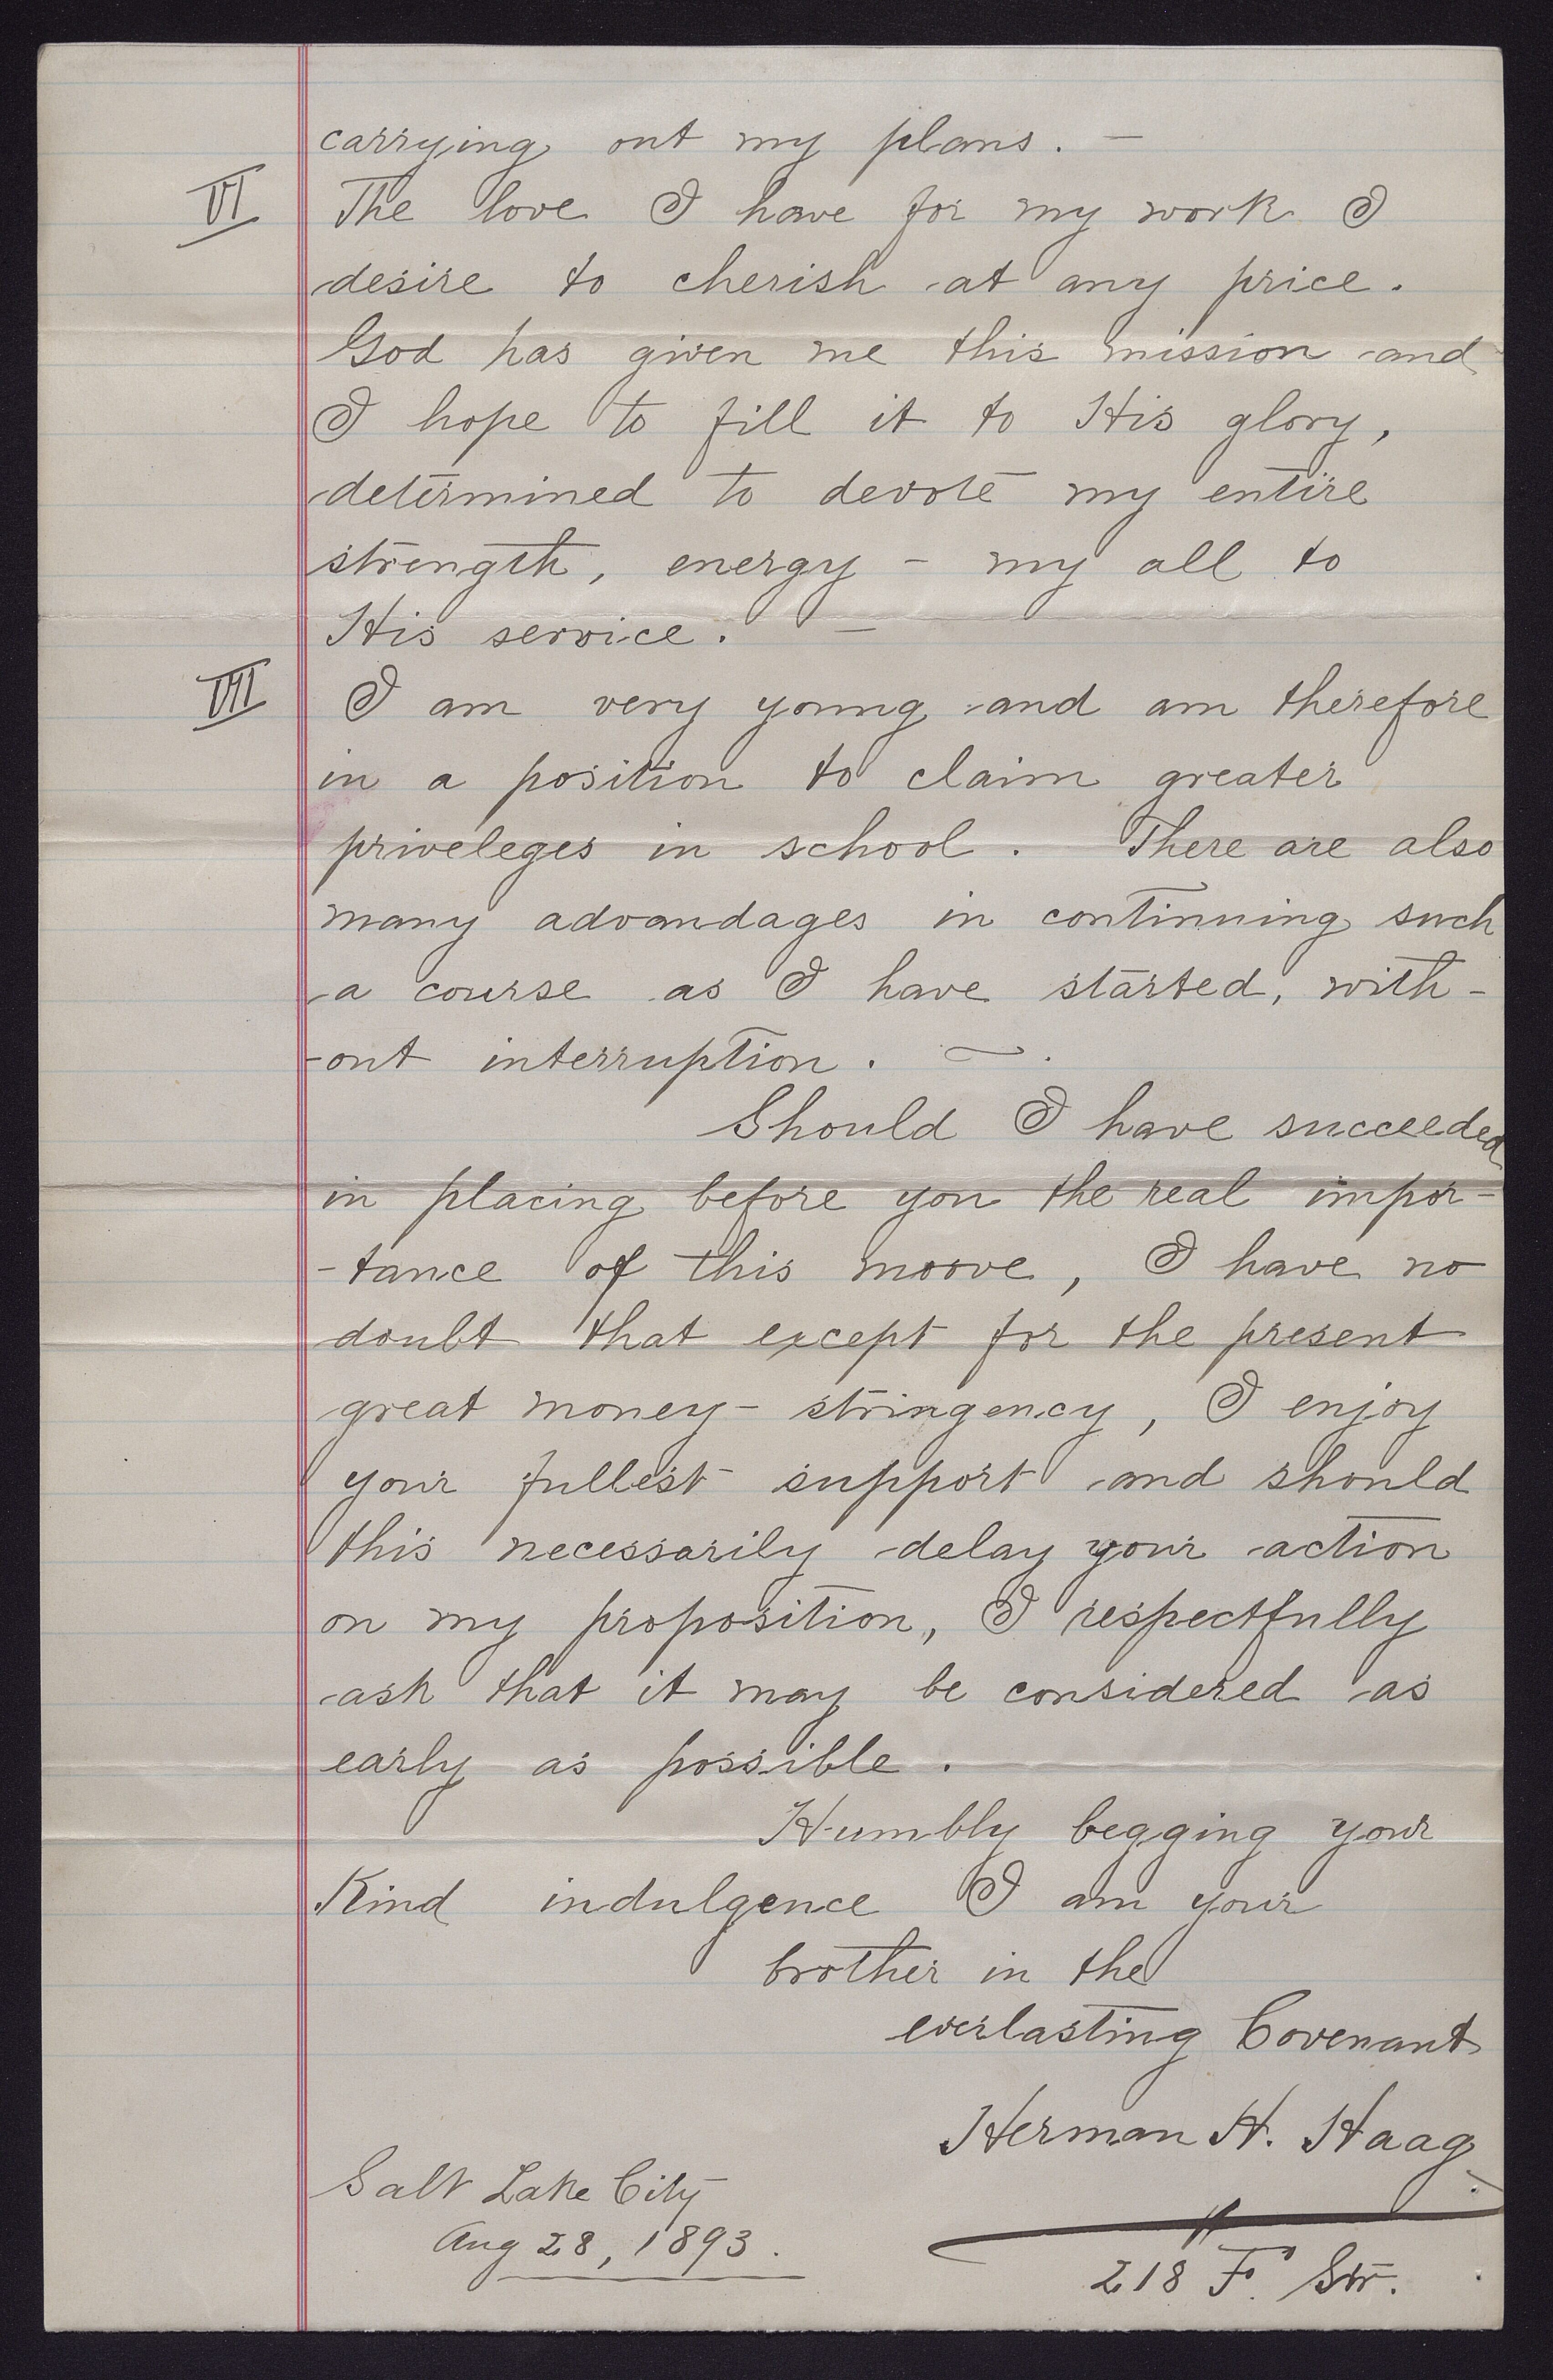 carrying out my plans. —
VI The love I have for my work I
desire to cherish at any price.
God has given me this mission and
I hope to fill it to His glory,
determined to devote my entire
strength, energy – my all to
His service. —
VII I am very young and am therefore
in a position to claim greater
priveleges in school. There are also
many advandages in continuing such
a course as I have started, with-
-out interruption. — .
Should I have succeeded
in placing before you the real impor-
-tance of this moove, I have no
doubt that except for the present
great money-stringency, I enjoy
your fullest support and should
this necessarily delay your action
on my proposition, I respectfully
ask that it may be considered as
early as possible.
Humbly begging your
Kind indulgence I am your
brother in the
everlasting Covenant
Herman H. Haag.
Salt Lake City
Aug 28, 1893.
218 F. Str.